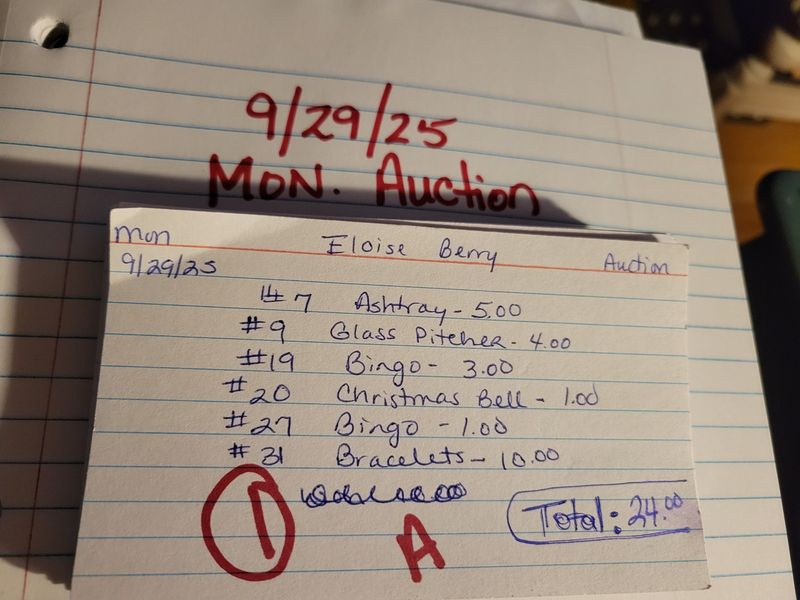 9/29/25
MON. Auction
Mon Eloise Berry Auction
9/29/25
#7 Ashtray - 5.00
#9 Glass Pitcher - 4.00
#19 Bingo - 3.00
#20 Christmas Bell - 1.00
#27 Bingo - 1.00
#31 Bracelets - 10.00
1 A Total: 24.00